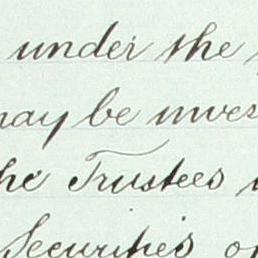 under the
may be inves
the Trustees
Securities or